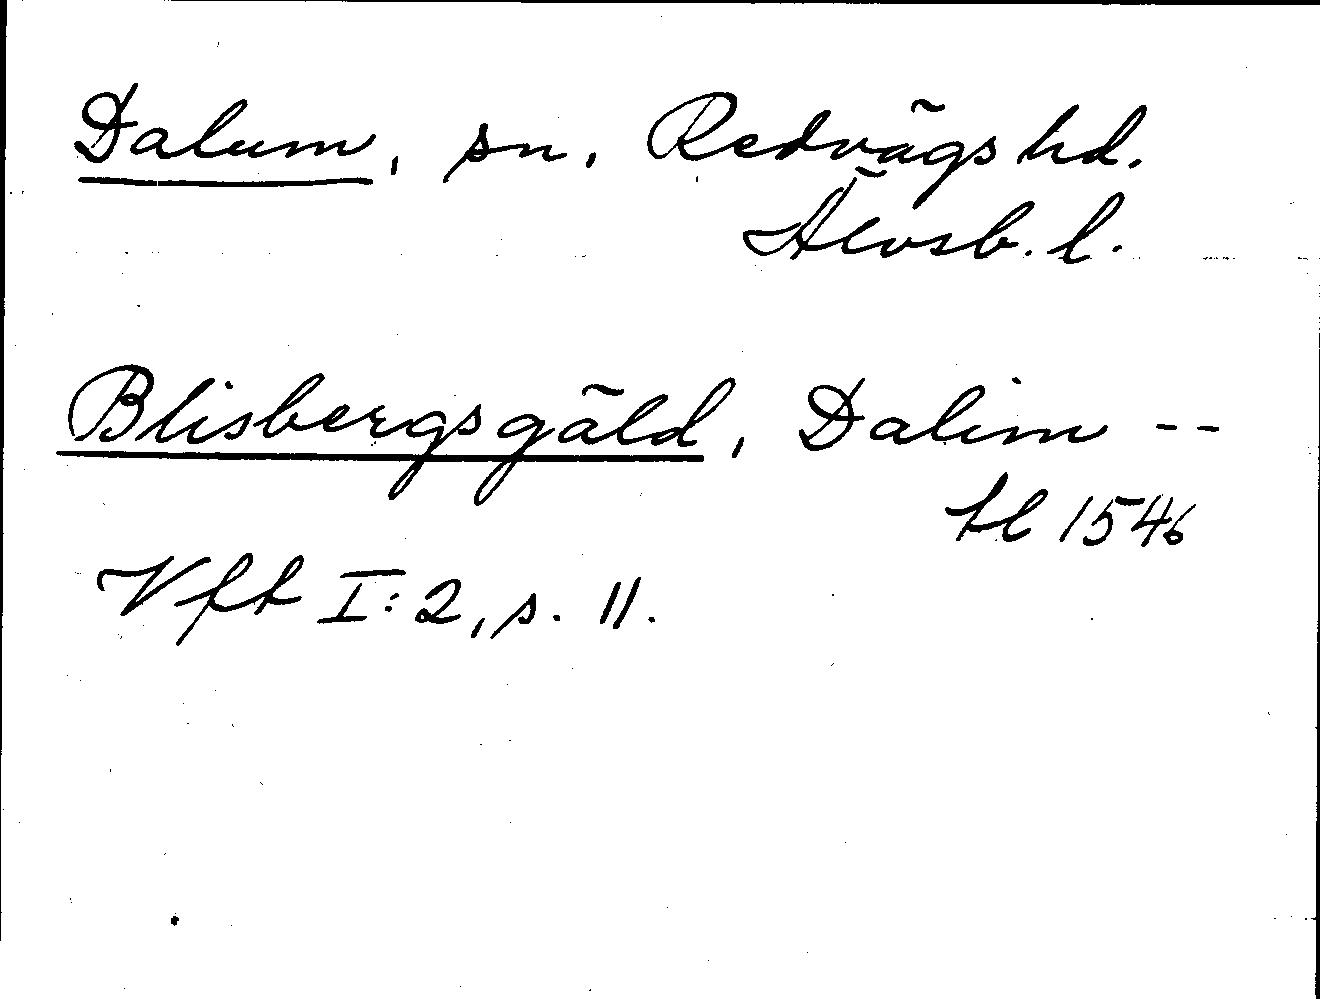 Dalum, sn. Redvägs hd.
Älvsb. l.
Blisbergsgäld, Dalim --
tl 1546
Vft I:2, s. 11.